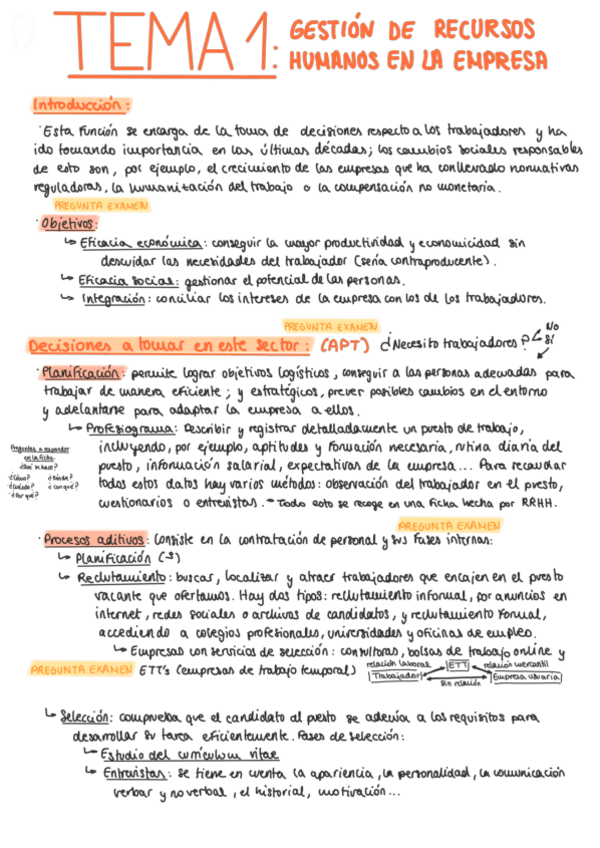 TEMA 1: GESTIÓN DE RECURSOS
HUMANOS EN LA EMPRESA
Introducción:
· Esta función se encarga de la toma de decisiones respecto a los trabajadores y ha
ido tomando importancia en las últimas décadas; los cambios sociales responsables
de esto son, por ejemplo, el crecimiento de las empresas que ha conllevado normativas
reguladoras, la humanización del trabajo o la compensación no monetaria.
PREGUNTA EXAMEN
· Objetivos:
↳ Eficacia económica: conseguir la mayor productividad y economicidad sin
descuidar las necesidades del trabajador (sería contraproducente).
↳ Eficacia social: gestionar el potencial de las personas.
↳ Integración: conciliar los intereses de la empresa con los de los trabajadores.
PREGUNTA EXAMEN
Decisiones a tomar en este sector: (APT) ¿Necesito trabajadores?
No
Sí
· Planificación: permite lograr objetivos logísticos, conseguir a las personas adecuadas para
trabajar de manera eficiente; y estratégicos, prever posibles cambios en el entorno
y adelantarse para adaptar la empresa a ellos.
↳ Profesiograma: Describir y registrar detalladamente un puesto de trabajo,
incluyendo, por ejemplo, aptitudes y formación necesaria, rutina diaria del
puesto, información salarial, expectativas de la empresa... Para recaudar
todos estos datos hay varios métodos: observación del trabajador en el puesto,
cuestionarios o entrevistas. - Todo esto se recoge en una ficha hecha por RRHH.
Preguntas a responder
en la ficha:
¿Qué se hace?
¿Cómo? ¿Dónde?
¿Cuándo? ¿Con qué?
¿Por qué?
PREGUNTA EXAMEN
· Procesos aditivos: Consiste en la contratación de personal y sus fases internas:
↳ Planificación
↳ Reclutamiento: buscar, localizar y atraer trabajadores que encajen en el puesto
vacante que ofertamos. Hay dos tipos: reclutamiento informal, por anuncios en
internet, redes sociales o archivos de candidatos, y reclutamiento formal,
accediendo a colegios profesionales, universidades y oficinas de empleo.
↳ Empresas con servicios de selección: consultoras, bolsas de trabajo online y
PREGUNTA EXAMEN ETT's (empresas de trabajo temporal)
relación laboral ETT relación mercantil
Trabajador Empresa usuaria
sin relación
↳ Selección: comprueba que el candidato al puesto se adecúa a los requisitos para
desarrollar su tarea eficientemente. Fases de selección:
↳ Estudio del currículum vitae
↳ Entrevistas: se tiene en cuenta la apariencia, la personalidad, la comunicación
verbal y no verbal, el historial, motivación...